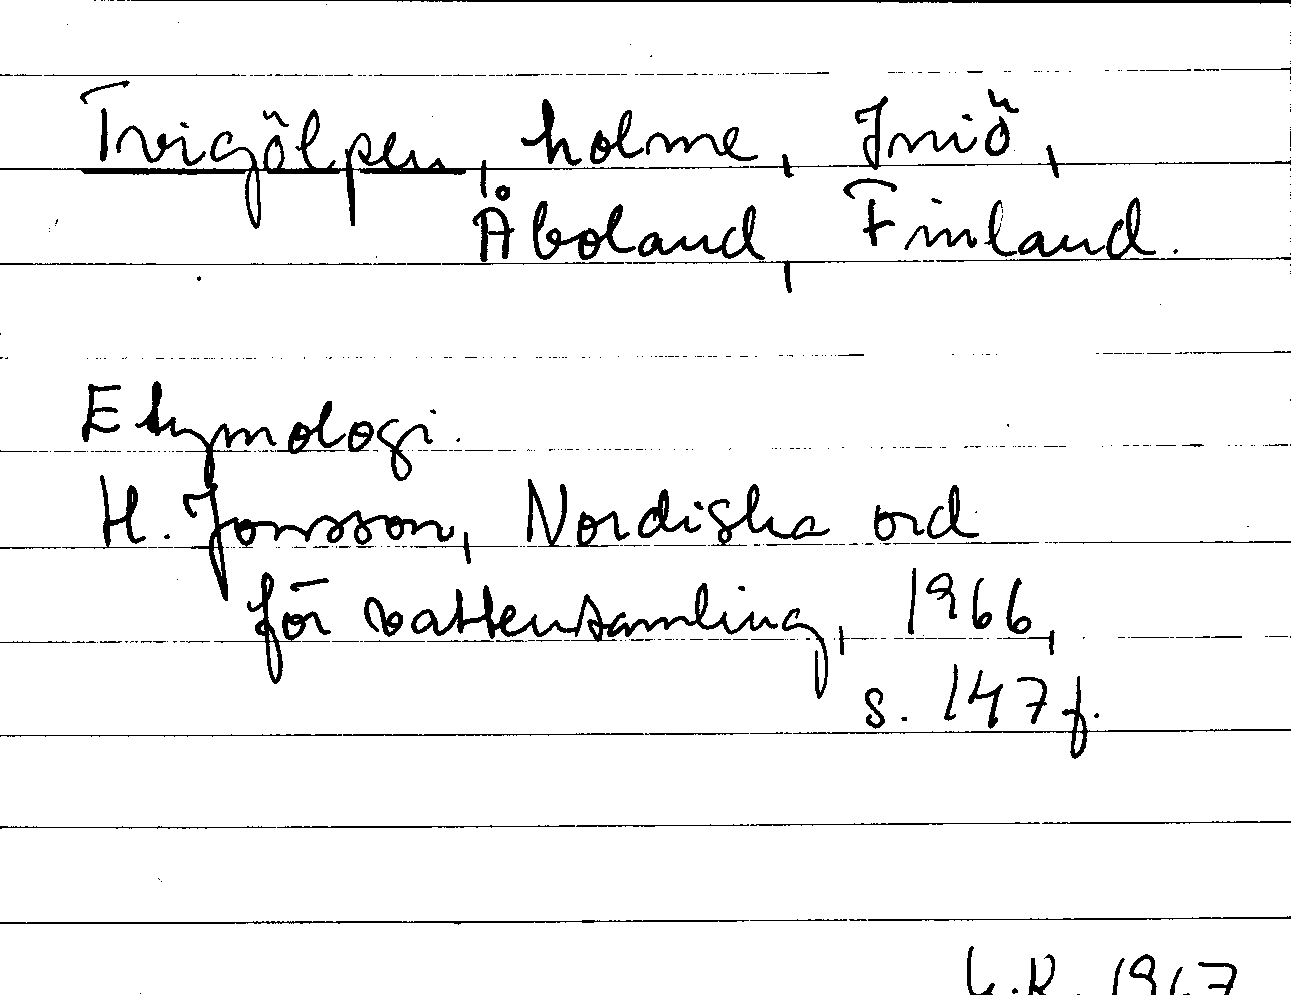 Tvigölpen, holme, Iniö,
Åboland, Finland.
Etymologi.
H. Jonsson, Nordiska ord
för vattensamling, 1966,
s. 147 f.
1967